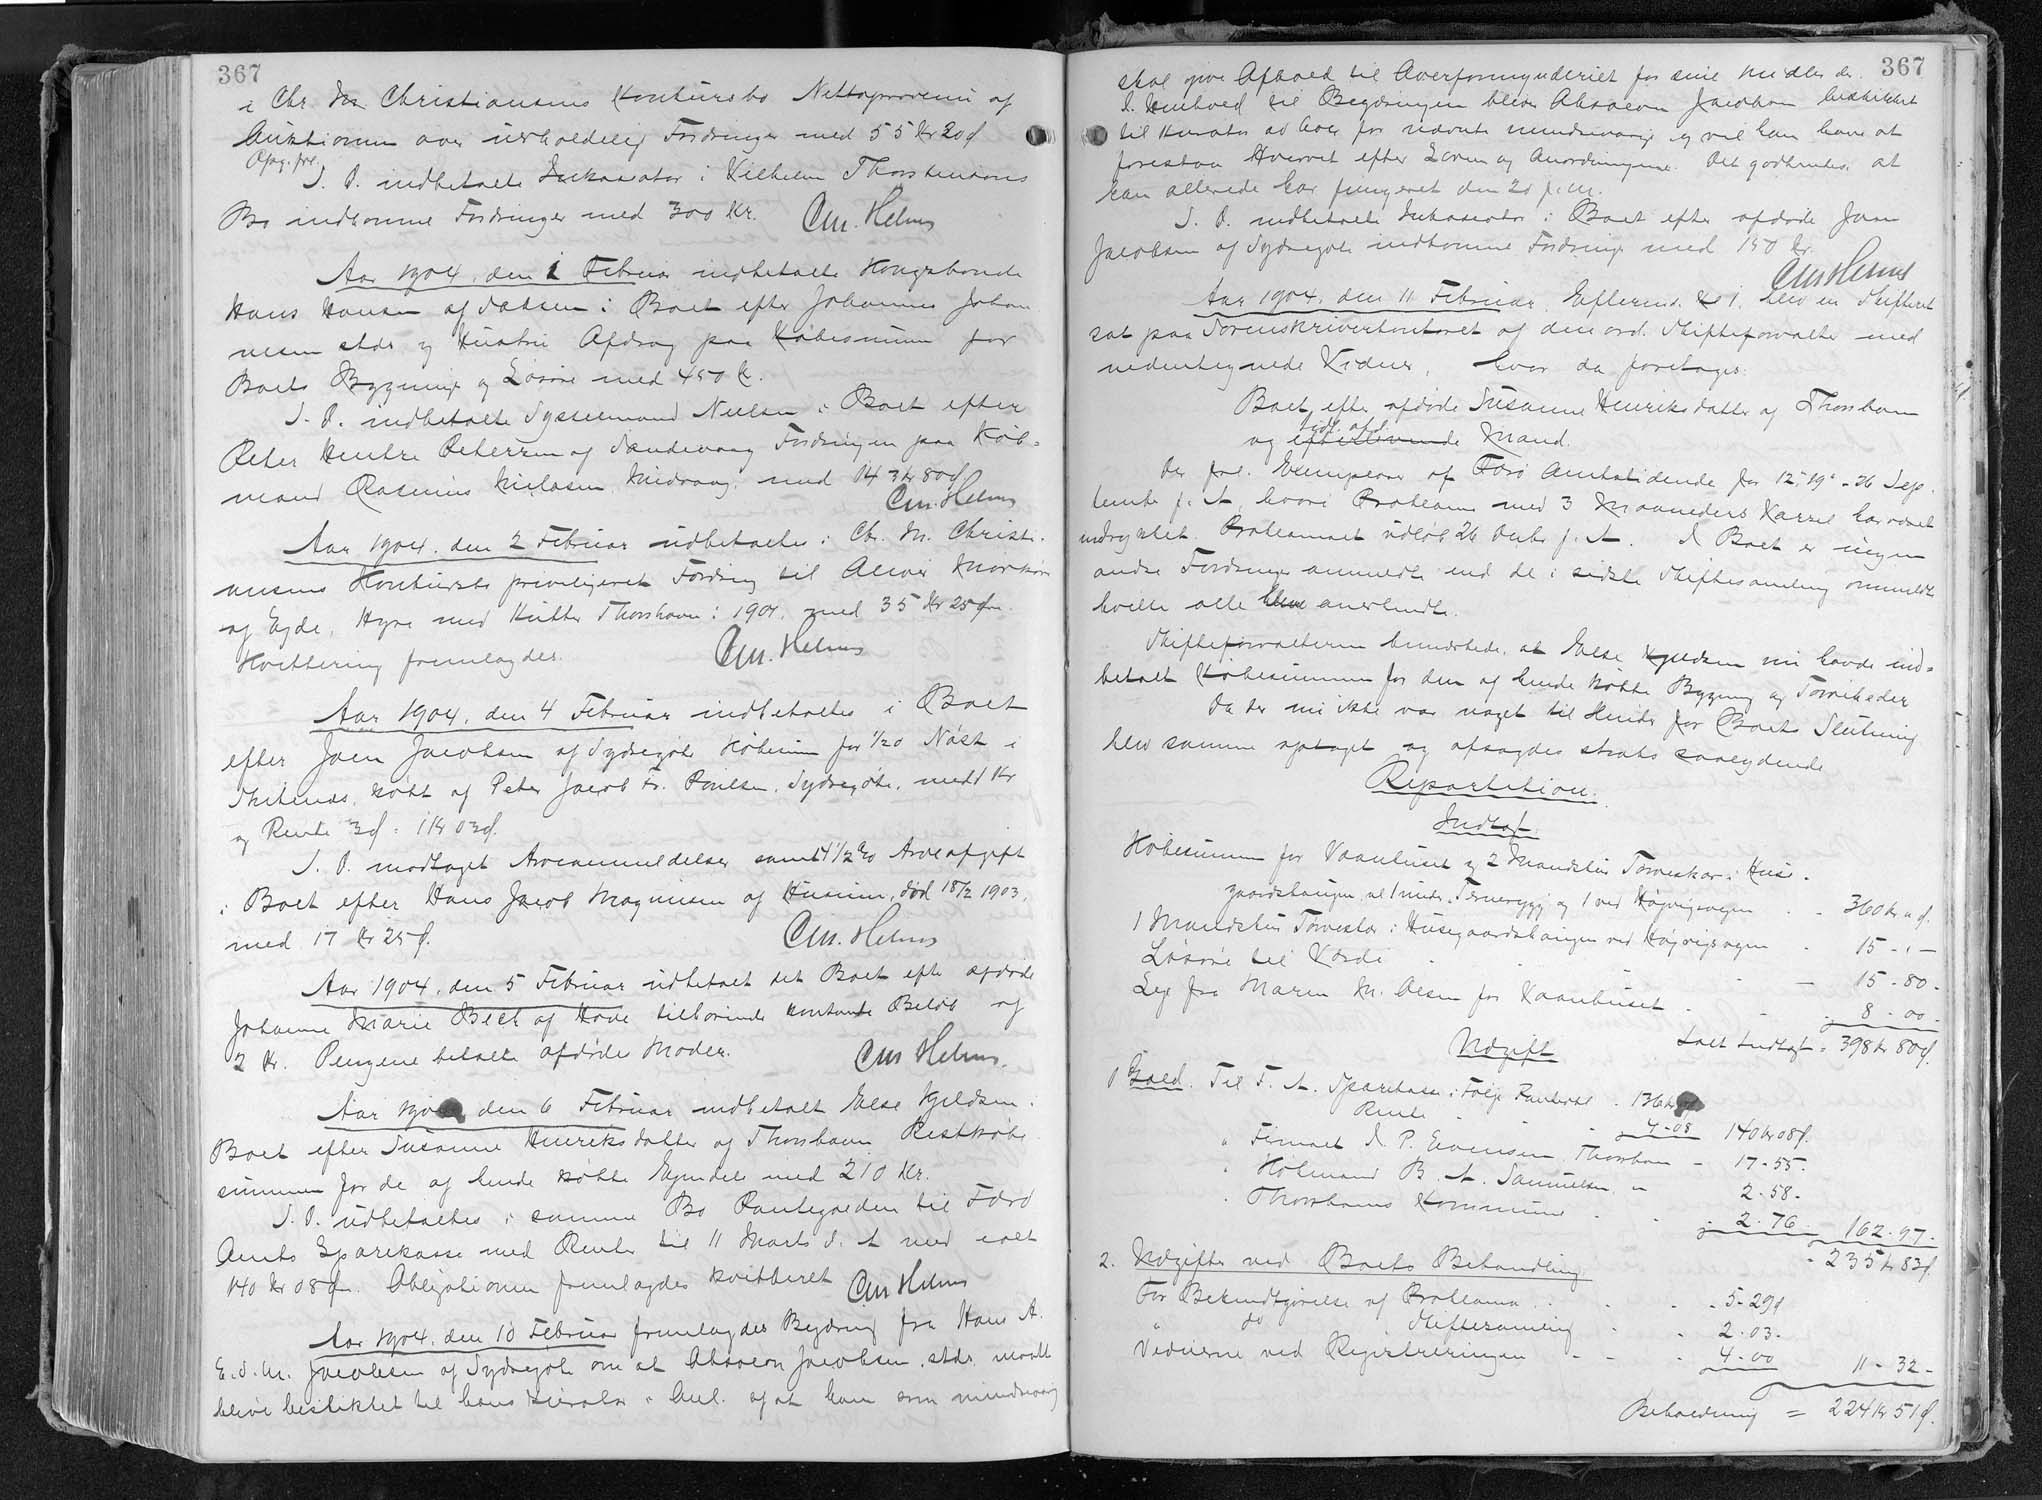 367
i Chr. M. Christiansens Konkursbo Nettoprovenu af
Auktionen over uerholdelig Fordringer med 55 Kr 20 ø
Opg. fre.
S. D. indbetalte Inkassator i Vilhelm Thorsteinsons
Bo indkomne Fordringer med 300 Kr. C.M. Helms
Aar 1904, den 1 Februar indbetalte Kongsbonde
Hans Hansen af i Boet efter Johannes Johan
nesen sts og Hustru Afdrag paa Købesummen for
Boets Bygninger og Løsøre med 450 Kr.
S. D. indbetalte Sysselmand Nielsen i Boet efter
Peter Petersen af Sandevaag Fordringen paa Køb-
mand Rasmus Nielsen, Midvaag, med 143 Kr 80 ø
C.M. Helms
Aar 1904, den 2 Februar udbetaltes i Chr. M. Christi-
ansens Konkursbo privilegeret Fordring til
af Ejde, Hyre med Kutter Thorshavn i 1901, med 35 Kr 25 Øre.
Kvittering fremlagdes. C.M. Helms
Aar 1904, den 4 Februar indbetaltes i Boet
efter Joen Jacobsen af Sydregøte Købesum for 1/20 Nøst i
købt af Peter Jacob Fr. Poulsen, Sydregøte, med 1 Kr
og Rente 3 ø = 1 Kr 03 ø.
S. D. modtaget Arveanmeldelse samt 4 1/2 % Arveafgift
i Boet efter Hans Jacob Magnusen af Husum, død 18/2 1903,
med 17 Kr 25 ø. C.M. Helms
Aar 1904, den 5 Februar udbetalt det Boet efter afdøde
Johanne Marie Beck af Hove tilkommende kontante Beløb af
2 Kr. Pengene betalte afdødes Moder. C.M. Helms.
Aar 1904, den 6 Februar indbetalt Else Kjeldsen i
Boet efter Susanne Henriksdatter af Thorshavn Restkøbe-
summen for de af hende købte Ejendele med 210 Kr.
S. D. udbetaltes i samme Bo Pantegælden til Færø
Amts Sparekasse med Renter til 11 Marts d. A. med ialt
140 Kr 08 Øre. Obligationen fremlagdes kvitteret C.M. Helms
Aar 1904, den 10 Februar fremlagdes Begæring fra Hans A.
E. S. M. Jacobsen af Sydregøte om at Absalon Jacobsen, sts. maatte
blive beskikket til hans Kurator i Anl. af at han som mindreaarig
367
skal give Afkald til Overformynderiet for sine Midler der.
I Henhold til Begæringen bliver Absalon Jacobsen beskikket
til Kurator ad hoc for nævnte mindreaarig og vil han have at
forestaa Hvervet efter Loven og Anordningerne. Det godkendes, at
han allerede har fungeret den 20 p. M.
S. D. indbetalte Inkassator i Boet efter afdøde Joen
Jacobsen af Sydregøte indkomne Fordringer med 150 Kr.
C.M. Helms
Aar 1904, den 11 Februar, Eftermd. Kl 1, blev en Skifteret
sat paa Sorenskriverkontoret af den ord. Skifteforvalter med
nedentegnede Vidner, hvor da foretages:
Boet efter afdøde Susanne Henriksdatter af Thorshavn
og efterlevende Mand.
Der frel. Exemplarer af Færø Amtstidende for 12', 19' & 26 Sep-
tember f. A., hvori Proklama med 3 Maaneders Varsel har været
indrykket. Proklamaet udløb 26 Decbr f. A. I Boet er ingen
andre Fordringer anmeldte end de i sidste Skiftesamling anmeldte
hvilke alle blev anerkendte.
Skifteforvalteren bemærkede, at Else Kjeldsen nu havde ind-
betalt Købesummen for den af hende købte Bygning og Torvskader
Da der nu ikke var noget til Hinder for Boets Slutning
blev samme optaget og afsagdes straks saalydende
Repartition.
Indtægt
Købesummen for Vaanhuset og 2 Mandslus Torveskar i Huse-
gaardshaugen, al 1 under og 1 ved Højvigsvegen - - 360 Kr " ø.
1 Mandslus Torveskar i Husegaardshaugen ved Højvigsvegen - 15 - " -
Løsøre til Værdi - - - 15 - 80 -
Leje fra Maren M. Olsen for Vaanhuset - - 8 - 00 -
Ialt Indtægt = 398 Kr 80 ø.
Udgift
1 Gæld. Til F. A. Sparekasse i Følge Panteobl. - 136 Kr
Rente - - 4 - 08 140 Kr 08 ø.
" Firmaet J. P. Evensen, Thorshavn - 17 - 55 -
" Købmand B. A. Samuelsen, " 2 - 58 -
" Thorshavns Kommune - - 2 - 76 - 162 - 97 -
- 235 Kr 83 ø.
2. Udgifter ved Boets Behandling
For Bekendtgørelse af Proklama - - - 5 - 29 ø
" do Skiftesamling - - 2 - 03 -
Vidnerne ved Registreringen - - - 4 - 00 11 - 32 -
Beholdning = 224 Kr 51 ø.